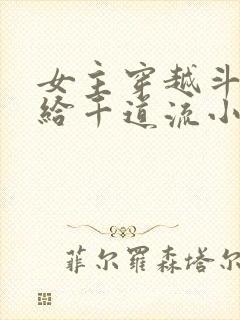 女主穿越斗
给千道流小
菲尔罗森塔尔